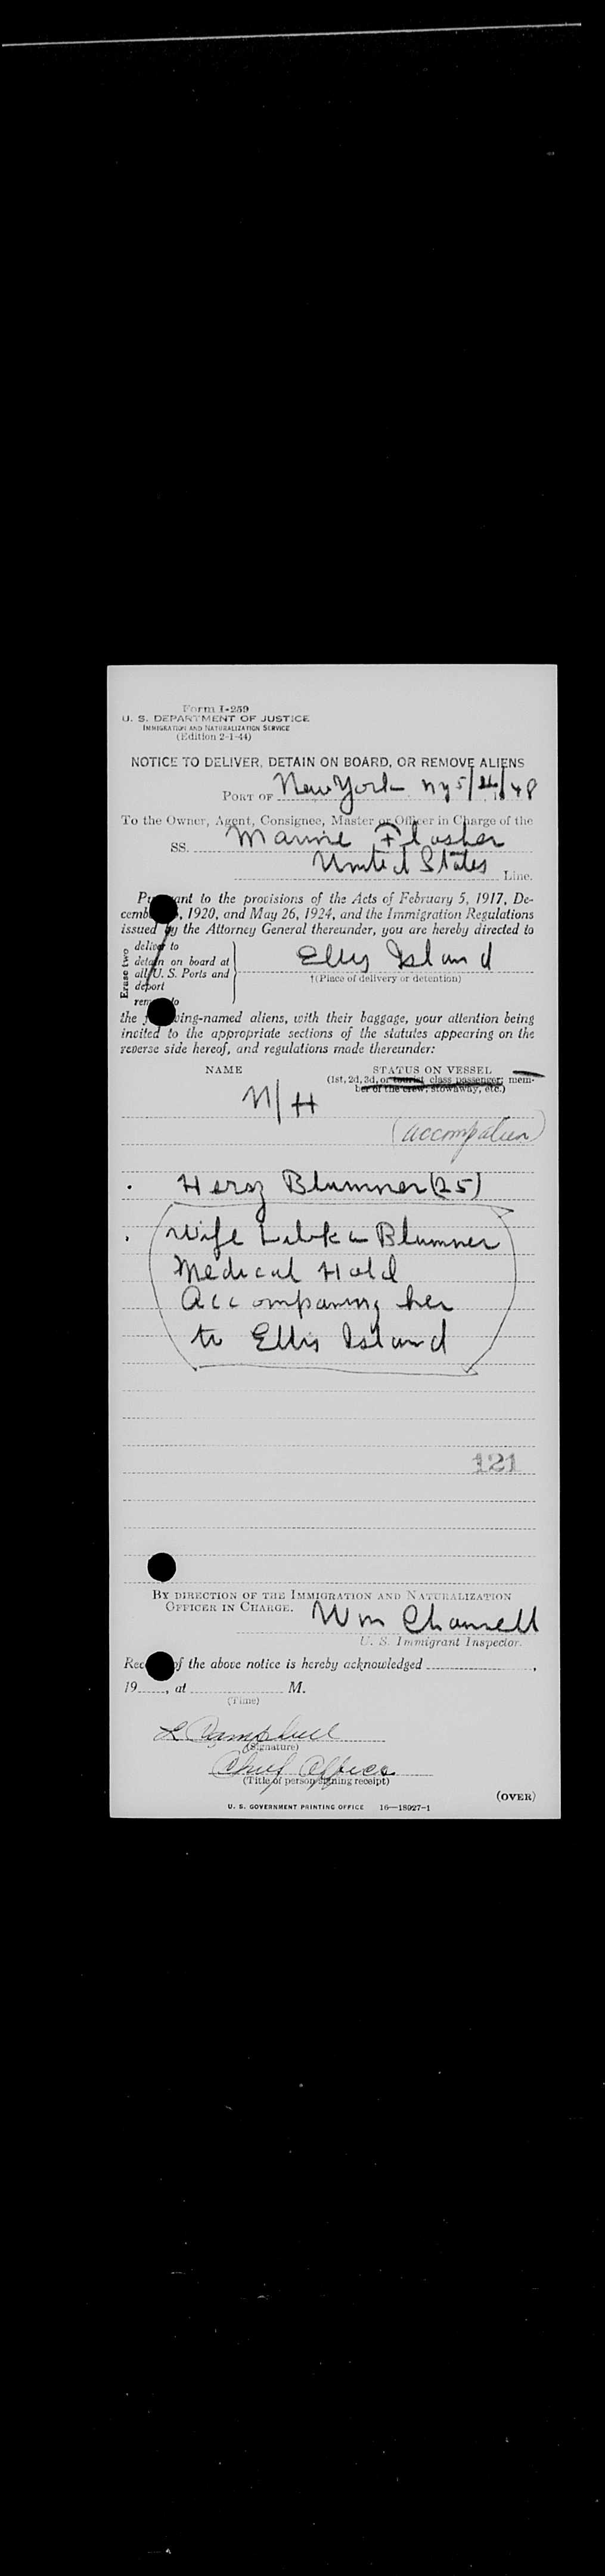 Form I-259
U. S. DEPARTMENT OF JUSTICE
IMMIGRATION AND NATURALIZATION SERVICE
(Edition 2-1-44)
NOTICE TO DELIVER, DETAIN ON BOARD, OR REMOVE ALIENS
PORT OF New York NY 5/24/48
To the Owner, Agent, Consignee, Master or Officer in Charge of the
SS. Marine Flasher
United States Line.
Pursuant to the provisions of the Acts of February 5, 1917, De-
cember , 1920, and May 26, 1924, and the Immigration Regulations
issued by the Attorney General thereunder, you are hereby directed to
Erase two
deliver to
detain on board at
all U. S. Ports and
deport
remove to
Ellis Island
†(Place of delivery or detention)
the following-named aliens, with their baggage, your attention being
invited to the appropriate sections of the statutes appearing on the
reverse side hereof, and regulations made thereunder:
NAME STATUS ON VESSEL
(1st, 2d, 3d, or tourist class passenger; mem-
ber of the crew; stowaway, etc.)
M/H
Hersz Blumner (25)
Wife Blumner
Medical Hold
Accompaning her
to Ellis Island
121
BY DIRECTION OF THE IMMIGRATION AND NATURALIZATION
OFFICER IN CHARGE. Wm
U. S. Immigrant Inspector.
Receipt of the above notice is hereby acknowledged ,
19 , at M.
(Time)
L Campbell
(Signature)
Chief Officer
(Title of person signing receipt)
(OVER)
U. S. GOVERNMENT PRINTING OFFICE 16—18927-1